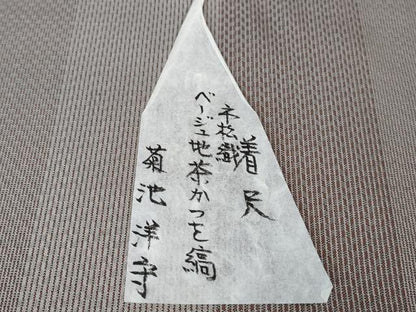 着尺
ベージュ地茶かつを縞
菊池洋守